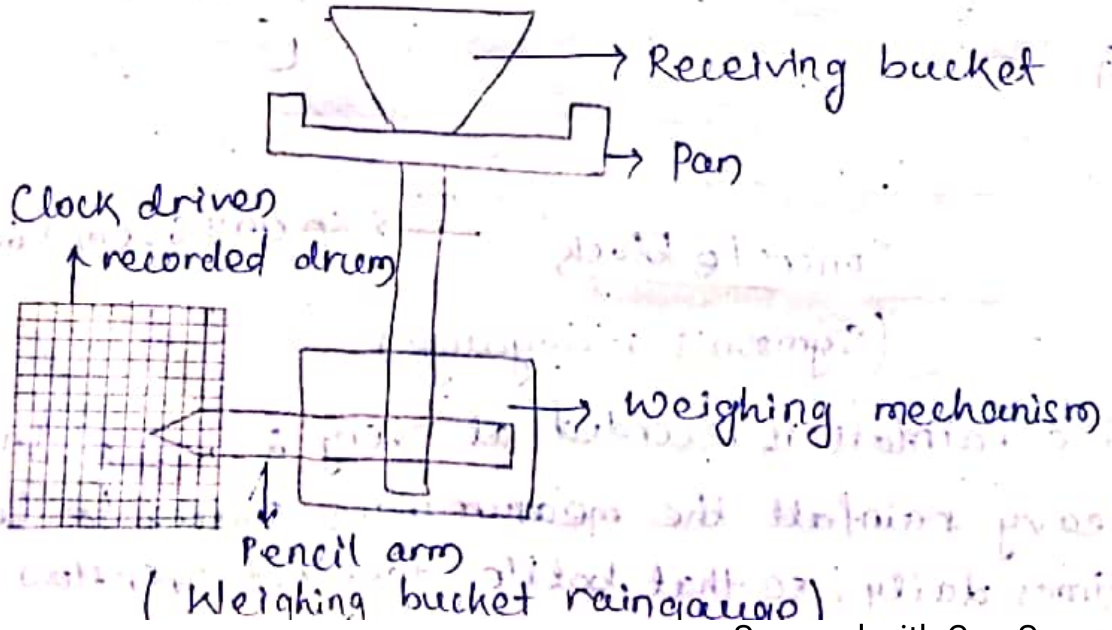 Receiving bucket
Pan
Clock driven
recorded drum
Weighing mechanism
Pencil arm
(Weighing bucket raingauge)